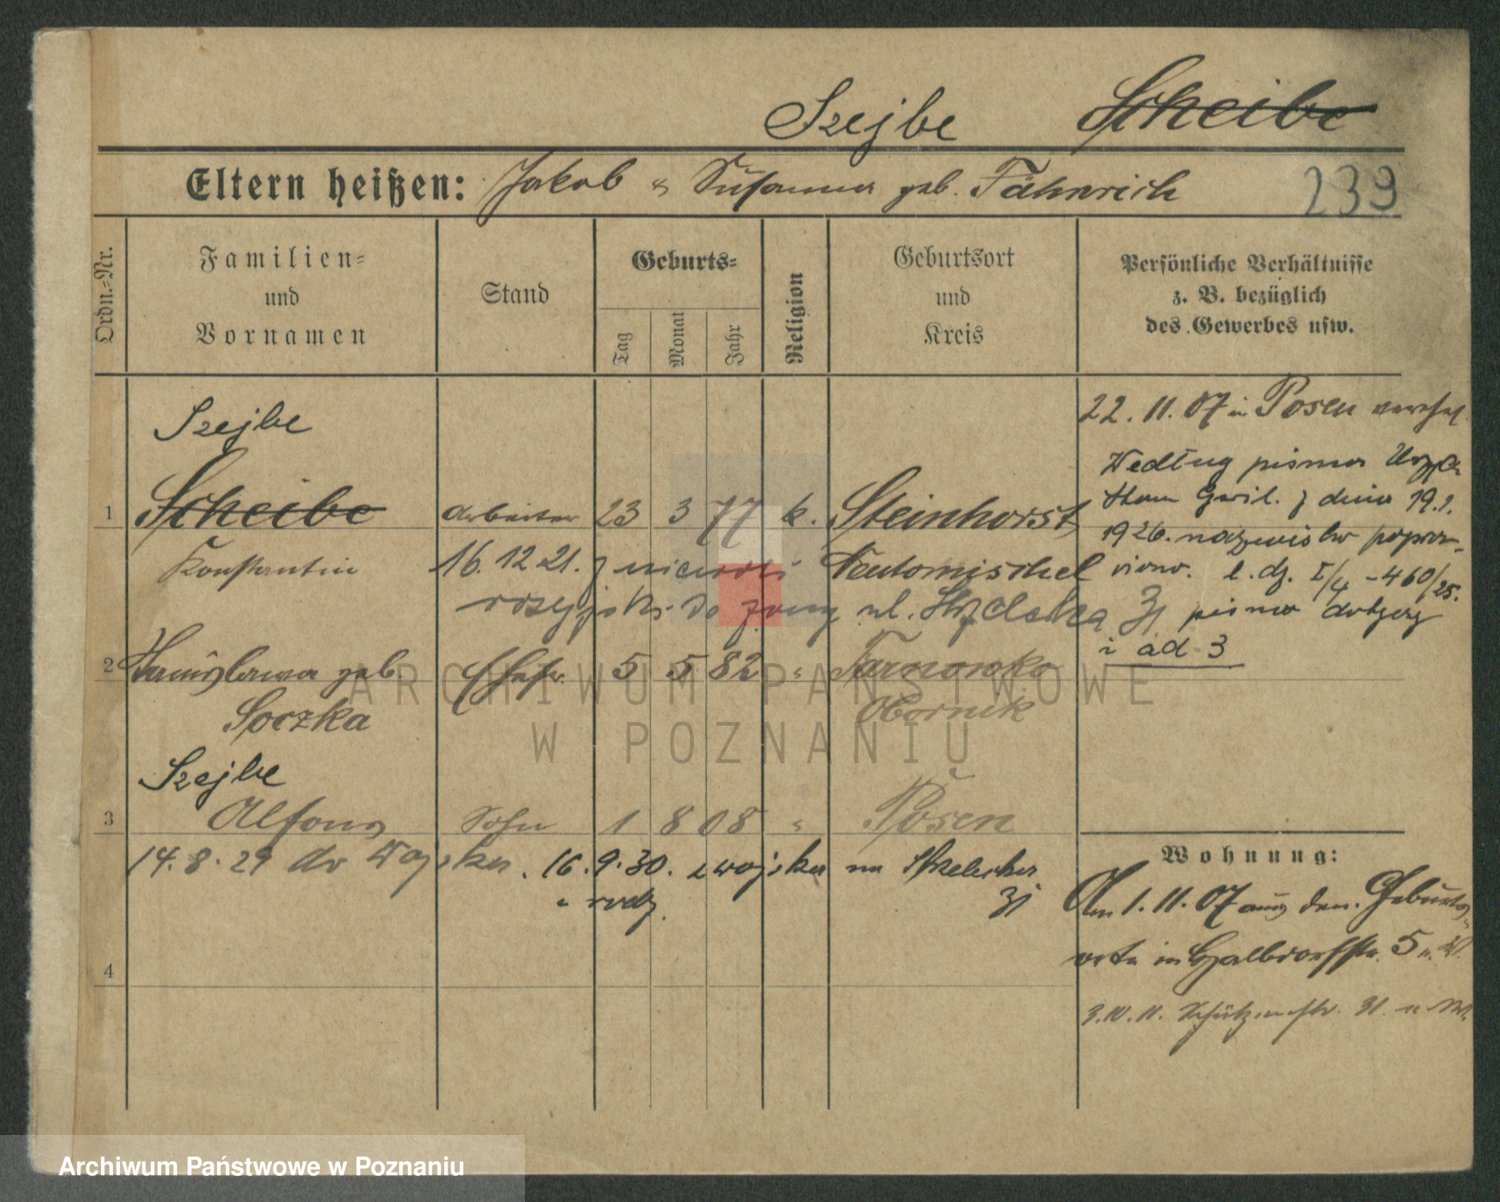 Szejbe Scheibe
Eltern heißen: Jakob u Susanna geb. Fähnrich 239
Ordn.-Nr.
Familien-
und
Vornamen
Stand
Geburts-
Tag
Monat
Jahr
Religion
Geburtsort
und
Kreis
Persönliche Verhältnisse
z. B. bezüglich
des Gewerbes usw.
22. 11. 07 in Posen
Szejbe
1 Scheibe Arbeiter 23 3 77 k. Steinhorst
Konstantin Neutomischel
16. 12 21. z
do żony ul. Strzelecka 31
Według pisma
Stan Cywil. z dnia 19.1.
1926. nazwisko popra-
wiono. l. dz. I/4 - 460/25.
pismo dotyczy
i ad 3
2 Stanislawa geb. Ehefr. 5 5 82 " Tarnowko
Soczka Obornik
Szejbe
3 Alfons Sohn 1 8 08 " Posen
14. 8. 29 do Wojska. 16. 9. 30. z wojska na Strzelecka
31
4
Wohnung:
Am 1. 11. 07 aus den. Geburts-
orte in Halbdorfstr. 5
3. 10. 11. Schützenstr. 31.
ARCHIWUM PAŃSTWOWE
W POZNANIU
Archiwum Państwowe w Poznaniu